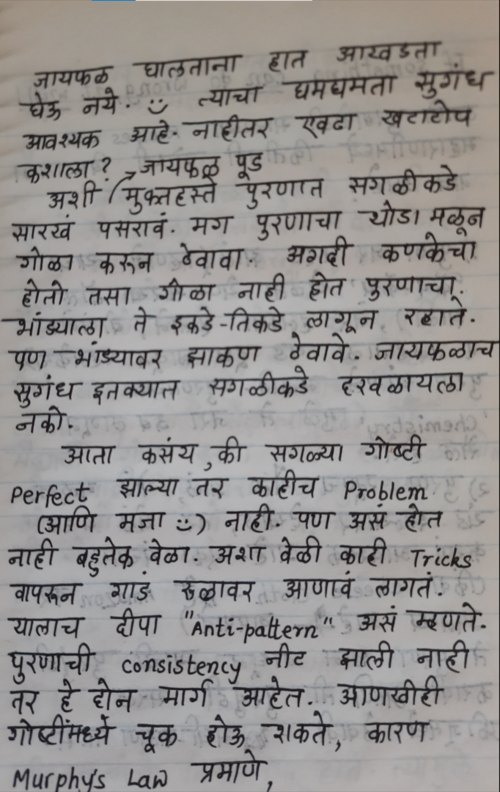 जायफळ घालताना हात आखडता
घेऊ नये. :) त्याचा घमघमता सुगंध
आवश्यक आहे. नाहीतर एवढा खटाटोप
कशाला? जायफळ पूड
अशी (मुक्तहस्ते पुरणात सगळीकडे
सारखं पसरावं. मग पुरणाचा थोडा मळून
गोळा करून ठेवावा. अगदी कणकेचा
होतो तसा गोळा नाही होत पुरणाचा.
भांड्याला ते इकडे-तिकडे लागून रहाते.
पण भांड्यावर झाकण ठेवावे. जायफळाच
सुगंध इतक्यात सगळीकडे दरवळायला
नको.
आता कसंय, की सगळ्या गोष्टी
Perfect झाल्या तर काहीच Problem
(आणि मजा :)) नाही. पण असं होत
नाही बहुतेक वेळा. अशा वेळी काही Tricks
वापरून गाडं रुळावर आणावं लागतं.
यालाच दीपा "Anti-pattern" असं म्हणते.
पुरणाची consistency नीट झाली नाही
तर हे दोन मार्ग आहेत. आणखीही
गोष्टींमध्ये चूक होऊ शकते, कारण
Murphy's Law प्रमाणे,